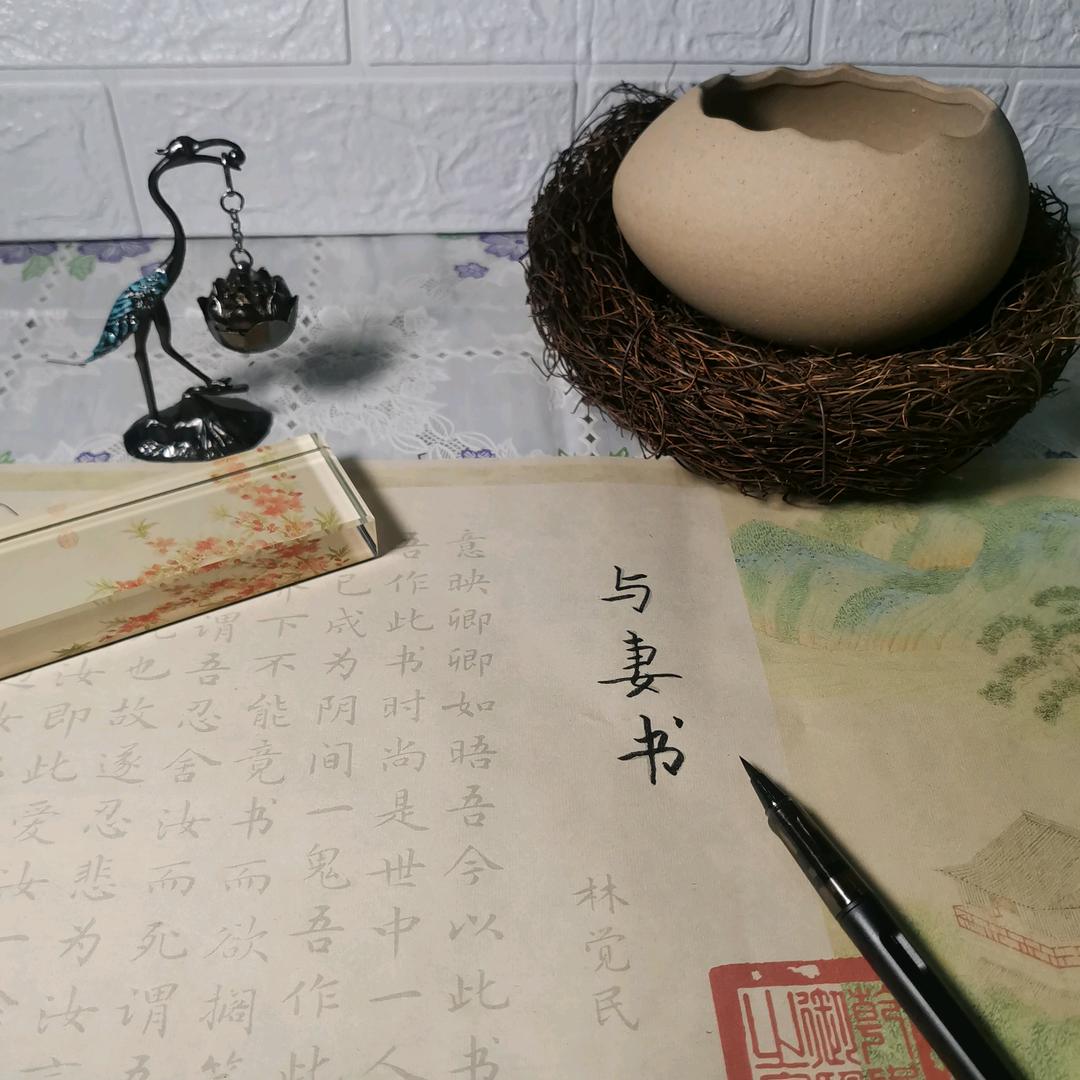 与妻书
林觉民
意映卿卿如晤吾今以此书
吾作此书时尚是世中一人
已成为阴间一鬼吾作此
下不能竟书而欲搁笔
谓吾忍舍汝而死谓吾
也故遂忍悲为汝言
汝即此爱汝一